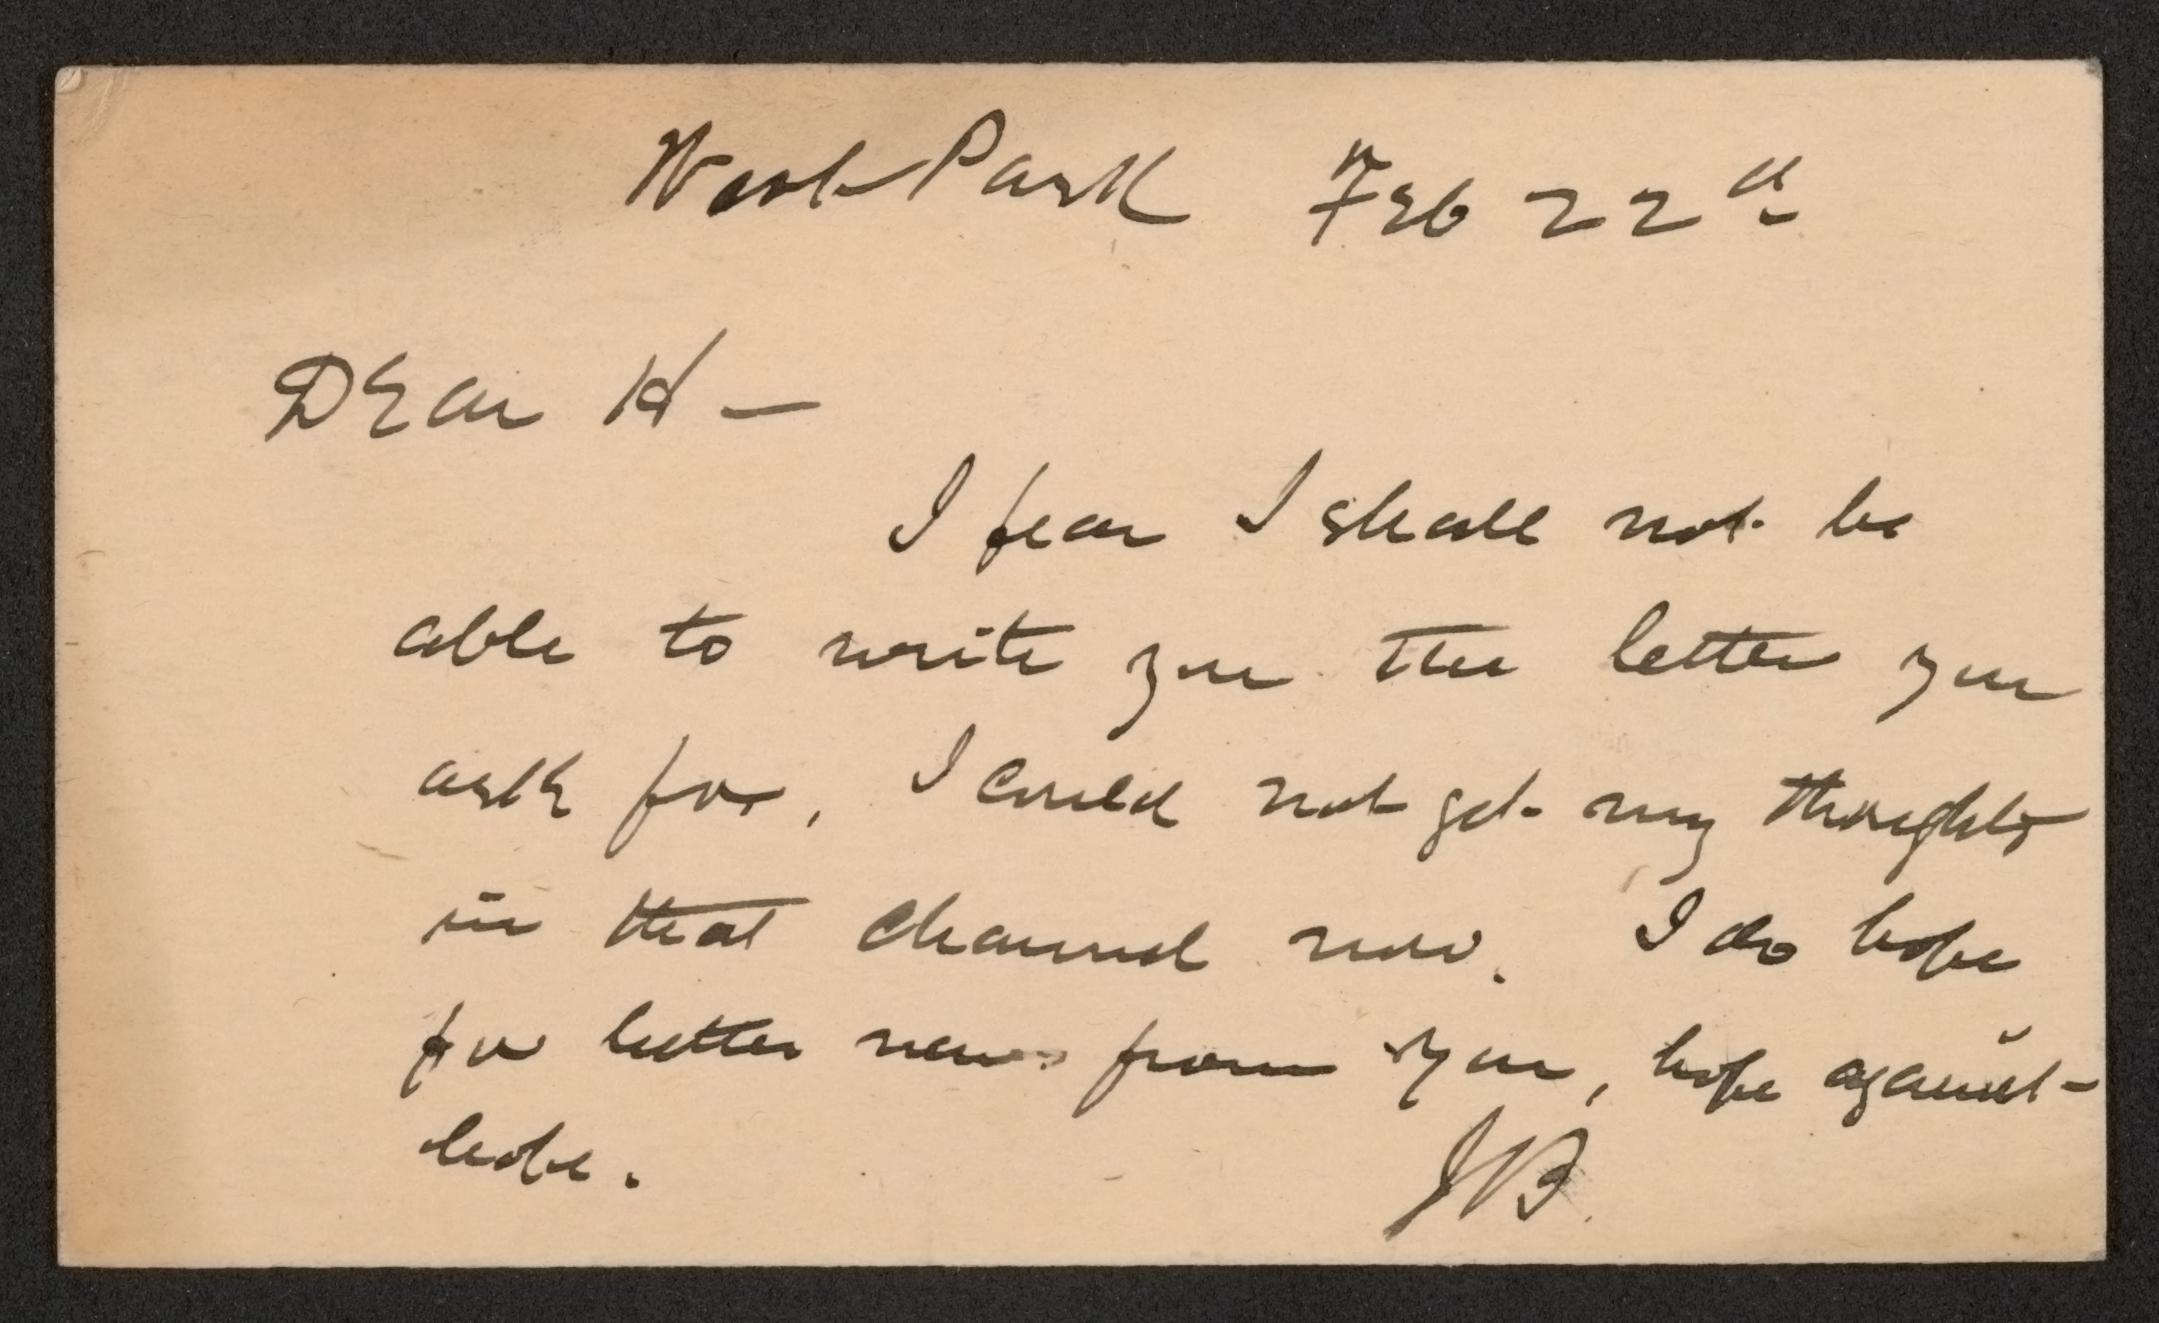 West Park Feb 22d
Dear H —
I fear I shall not be
able to write you the letter you
ask for, I could not get my thoughts
in that channel now. I do hope
for better news from you, hope against
hope.
JB.